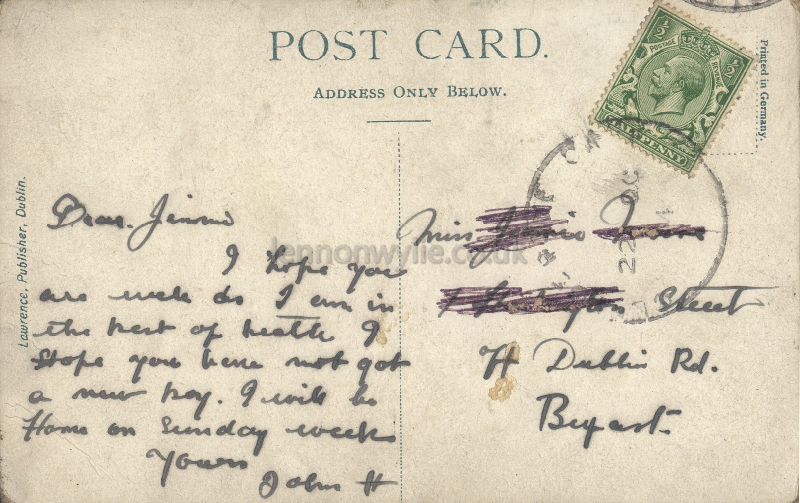 POST CARD.
ADDRESS ONLY BELOW.
Printed in Germany.
½ ½
POSTAGE REVENUE
HALFPENNY
Lawrence, Publisher, Dublin.
lennonwylie.co.uk
Dear Jennie
I hope you
are well as I am in
the best of health I
Hope you have not got
a new boy. I will be
Home on Sunday week
Yours
John H
Miss
Street
Dublin Rd.
Belfast.
22
OC